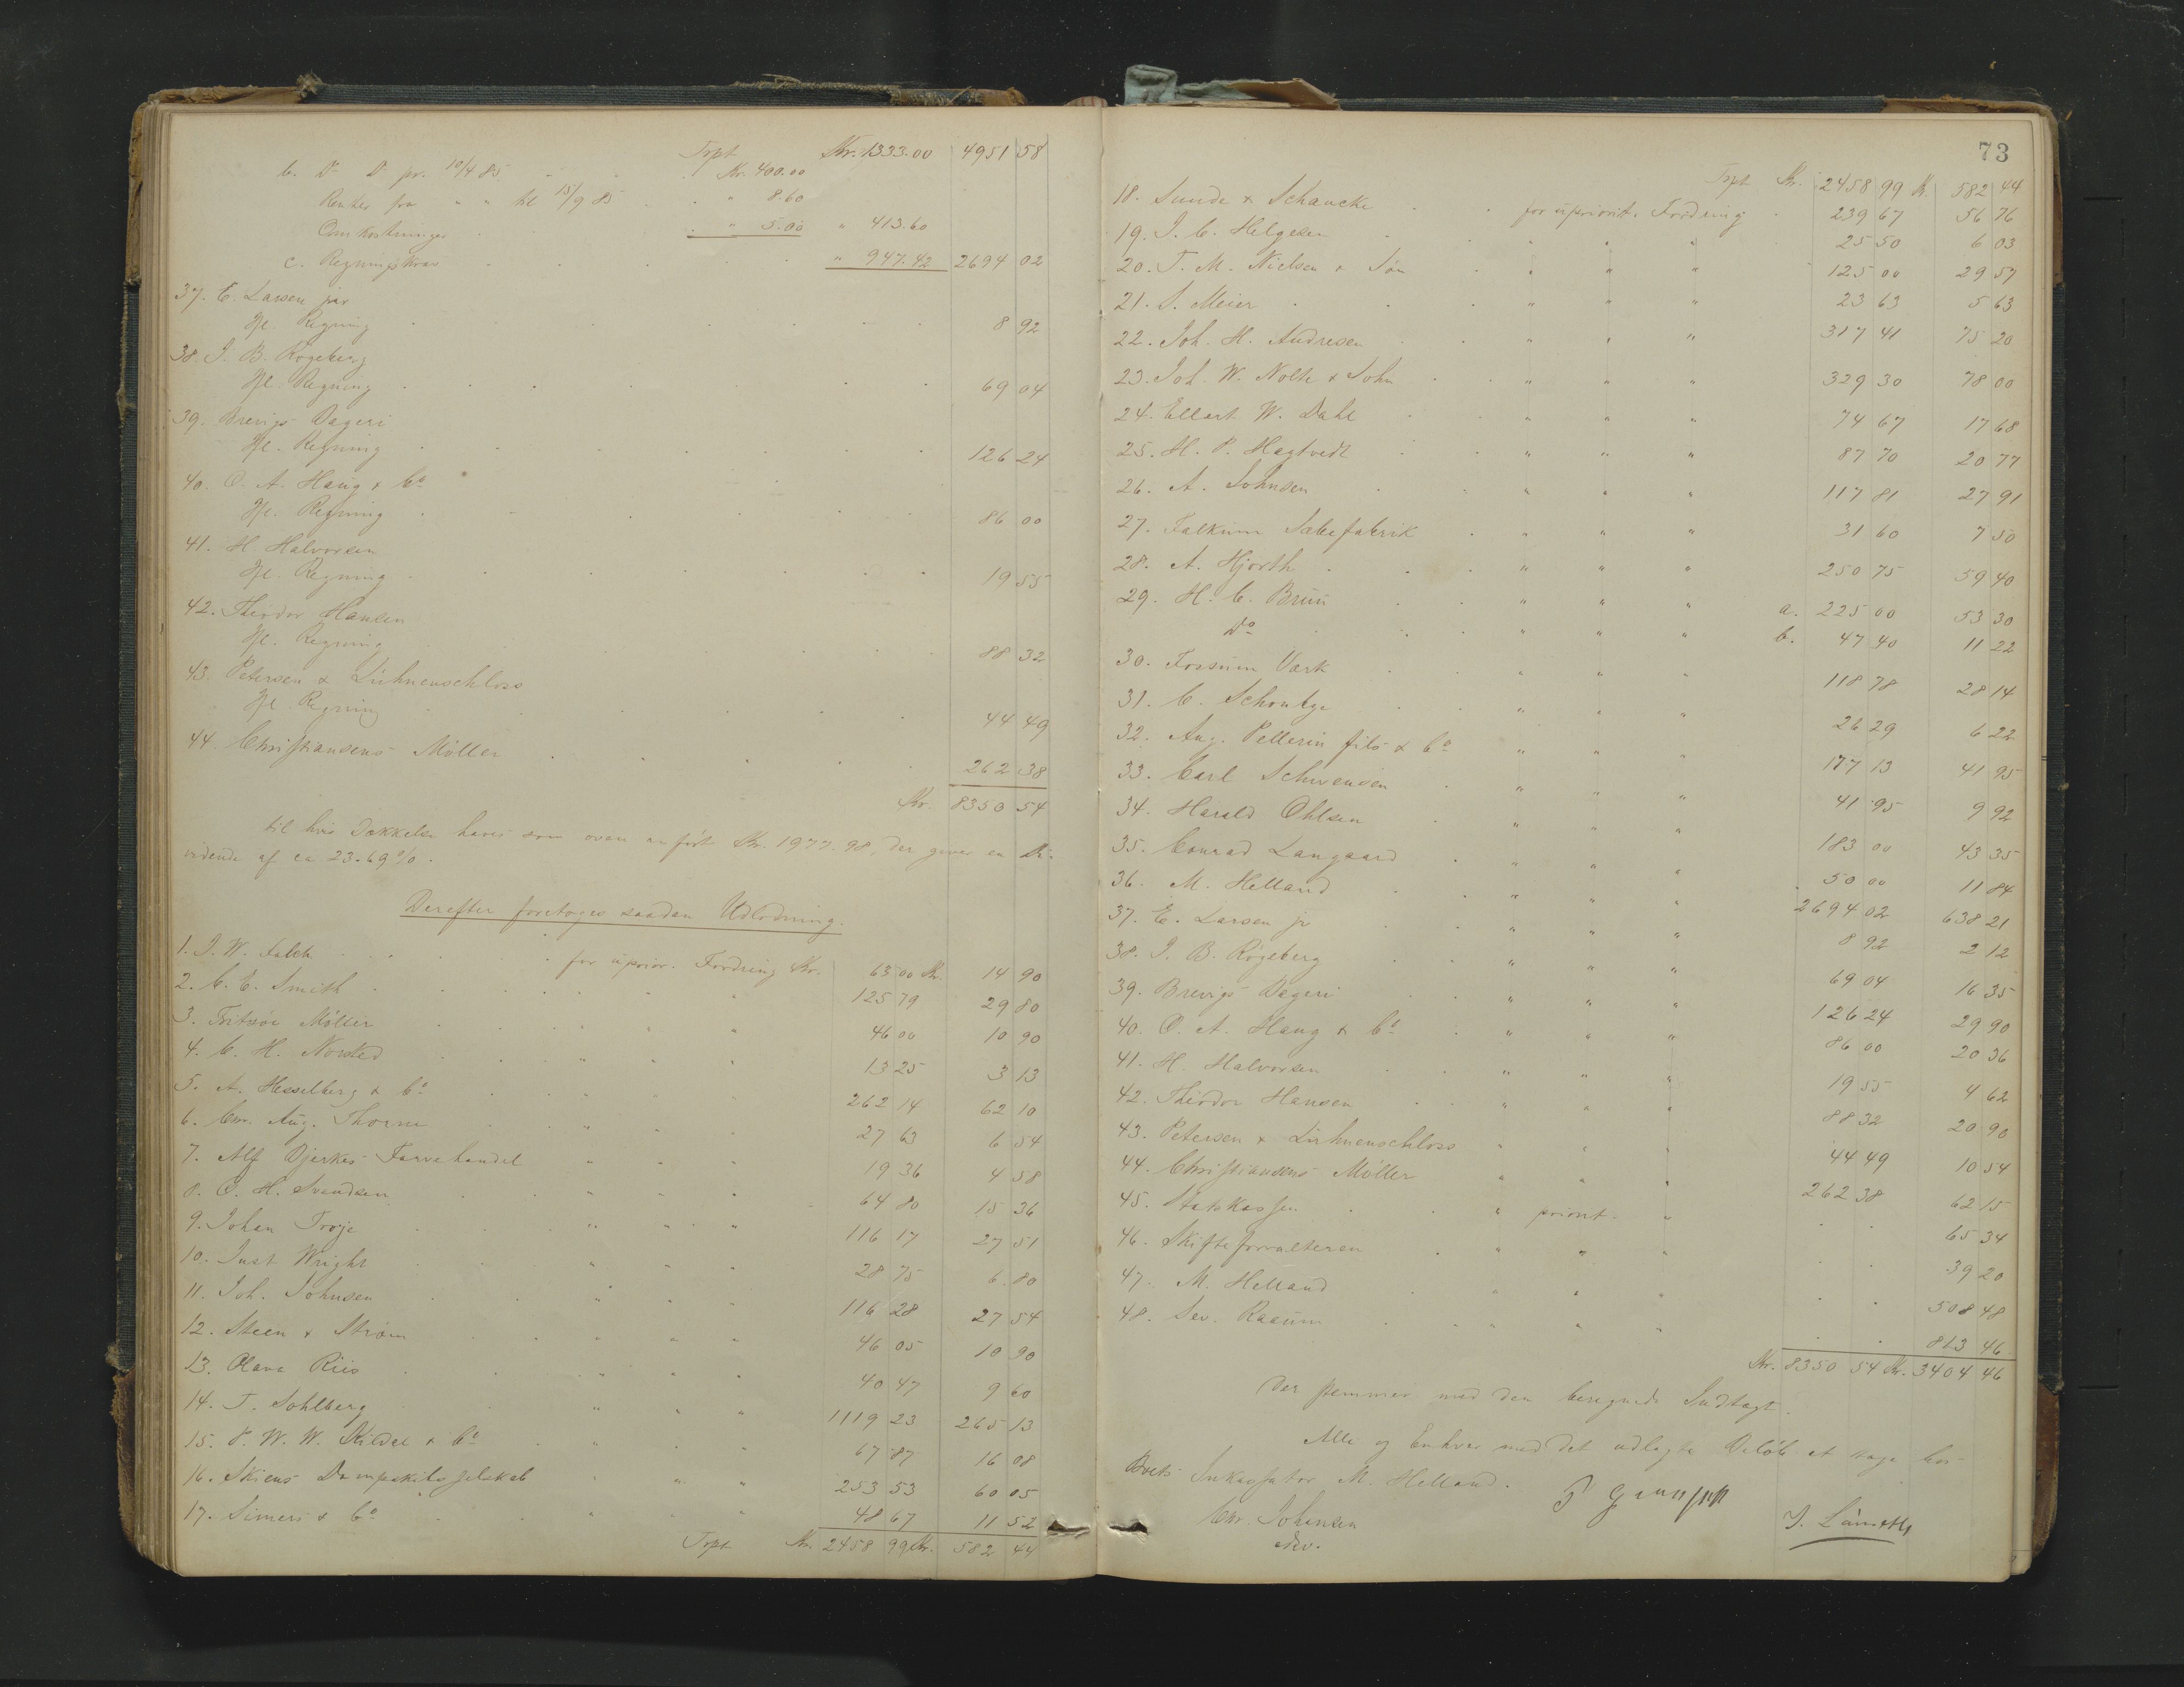 Trpt Kr. 1333.00 4951 58
b. Do Do pr. 10/4 85 . . . Kr. 400.00
Renter fra " " til 15/9 85 . . " 8.60
Omkostninger . . " 5.00 " 413.60
c. Regningskrav . . . . " 947.42 2694 02
37. E. Larsen jnr
Ifl. Regning . . . 8 92
38. J. B. Røgeberg
Ifl. Regning . . . 69 04
39. Brevigs Bageri
Ifl. Regning . . . 126 24
40. O. A. Haug & Co
Ifl. Regning . . . 86 00
41. H. Halvorsen
Ifl. Regning . . . 19 55
42. Theodor Hansen
Ifl. Regning . . . 88 32
43. Petersen & Lühnenschloss
Ifl. Regning . . . 44 49
44. Christiansens Møller . . . 262 38
Kr. 8350 54
til hvis Dækkelse haves som oven anført Kr. 1977.98, der giver en Di-
vidende af ca 23.69 %.
Derefter foretoges saadan Udlodning.
1. J. W. Falck . . . for uprior. Fordring Kr. 63 00 Kr. 14 90
2. C. E. Smith . . . " 125 79 29 80
3. Fritzøe Møller . . " " 46 00 10 90
4. C. H. Norsted . . " " " 13 25 3 13
5. A. Hesselberg & Co . . " " " 262 14 62 10
6. Chr. Aug. Thorne . . " " " 27 63 6 54
7. Alf Bjerkes Farvehandel " " " 19 36 4 58
8. O. H. Svendsen . . " " " 64 80 15 36
9. Johan Troje . . " " " 116 17 27 51
10. Just Wright . . " " " 28 75 6 80
11. Joh. Johnsen . . " " " 116 28 27 54
12. Steen & Strøm . . " " " 46 05 10 90
13. Olava Riis . . " " " 40 47 9 60
14. T. Sohlberg . . " " " 1119 23 265 13
15. P. W. W. Kildal & Co . " " " 67 87 16 08
16. Skiens Dampskibsselskab . " " " 253 53 60 05
17. Simers & Co . . " " " 48 67 11 52
Trpt Kr. 2458 99 Kr. 582 44
73
Trpt Kr. 2458 99 Kr. 582 44
18. Sunde & Schancke . . for upriorit. Fordring . 239 67 56 76
19. J. C. Helgesen . . " " " 25 50 6 03
20. T. M. Nielsen & Søn . " " " 125 00 29 57
21. S. Meier . . . " " " 23 63 5 63
22. Joh. H. Andresen . . " " " 317 41 75 20
23. Joh. W. Nolte & Sohn . . " " " 329 30 78 00
24. Ellert W. Dahl . . " " " 74 67 17 68
25. H. P. Hagtvedt . . " " " 87 70 20 77
26. A. Johnsen . . " " " 117 81 27 91
27. Falkum Sæbefabrik . " " " 31 60 7 50
28. A. Hjorth . . . " " " 250 75 59 40
29. H. C. Bruu . . " " " a. 225 00 53 30
Do . . . " " " b. 47 40 11 22
30. Fossum Værk . . " " " 118 78 28 14
31. C. Schontge . . " " " 26 29 6 22
32. Aug. Pellerin fils & Co " " " 177 13 41 95
33. Carl Schwensen . " " " 41 95 9 92
34. Harald Ohlsen . " " " 183 00 43 35
35. Conrad Langaard . " " " 50 00 11 84
36. M. Helland . . " " " 2694 02 638 21
37. E. Larsen jr . . " " " 8 92 2 12
38. J. B. Røgeberg . . " " " 69 04 16 35
39. Brevigs Bageri . . " " " 126 24 29 90
40. O. A. Haug & Co . " " " 86 00 20 36
41. H. Halvorsen . . " " " 19 55 4 62
42. Theodor Hansen . . " " " 88 32 20 90
43. Petersen & Lühnenschloss " " " 44 49 10 54
44. Christiansens Møller " " " 262 38 62 15
45. Statskassen . . " priorit. " . . 65 34
46. Skifteforvalteren . " " " . . 39 20
47. M. Helland . " " " . . 508 48
48. Sev. Raaum . . " " " . . 813 46
Kr. 8350 54 Kr. 3404 46
Der stemmer med den beregnede Indtægt.
Alle og Enhver med det udlagte Beløb at søge hos
Boets Inkassator M. Helland.
Chr. Johnsen